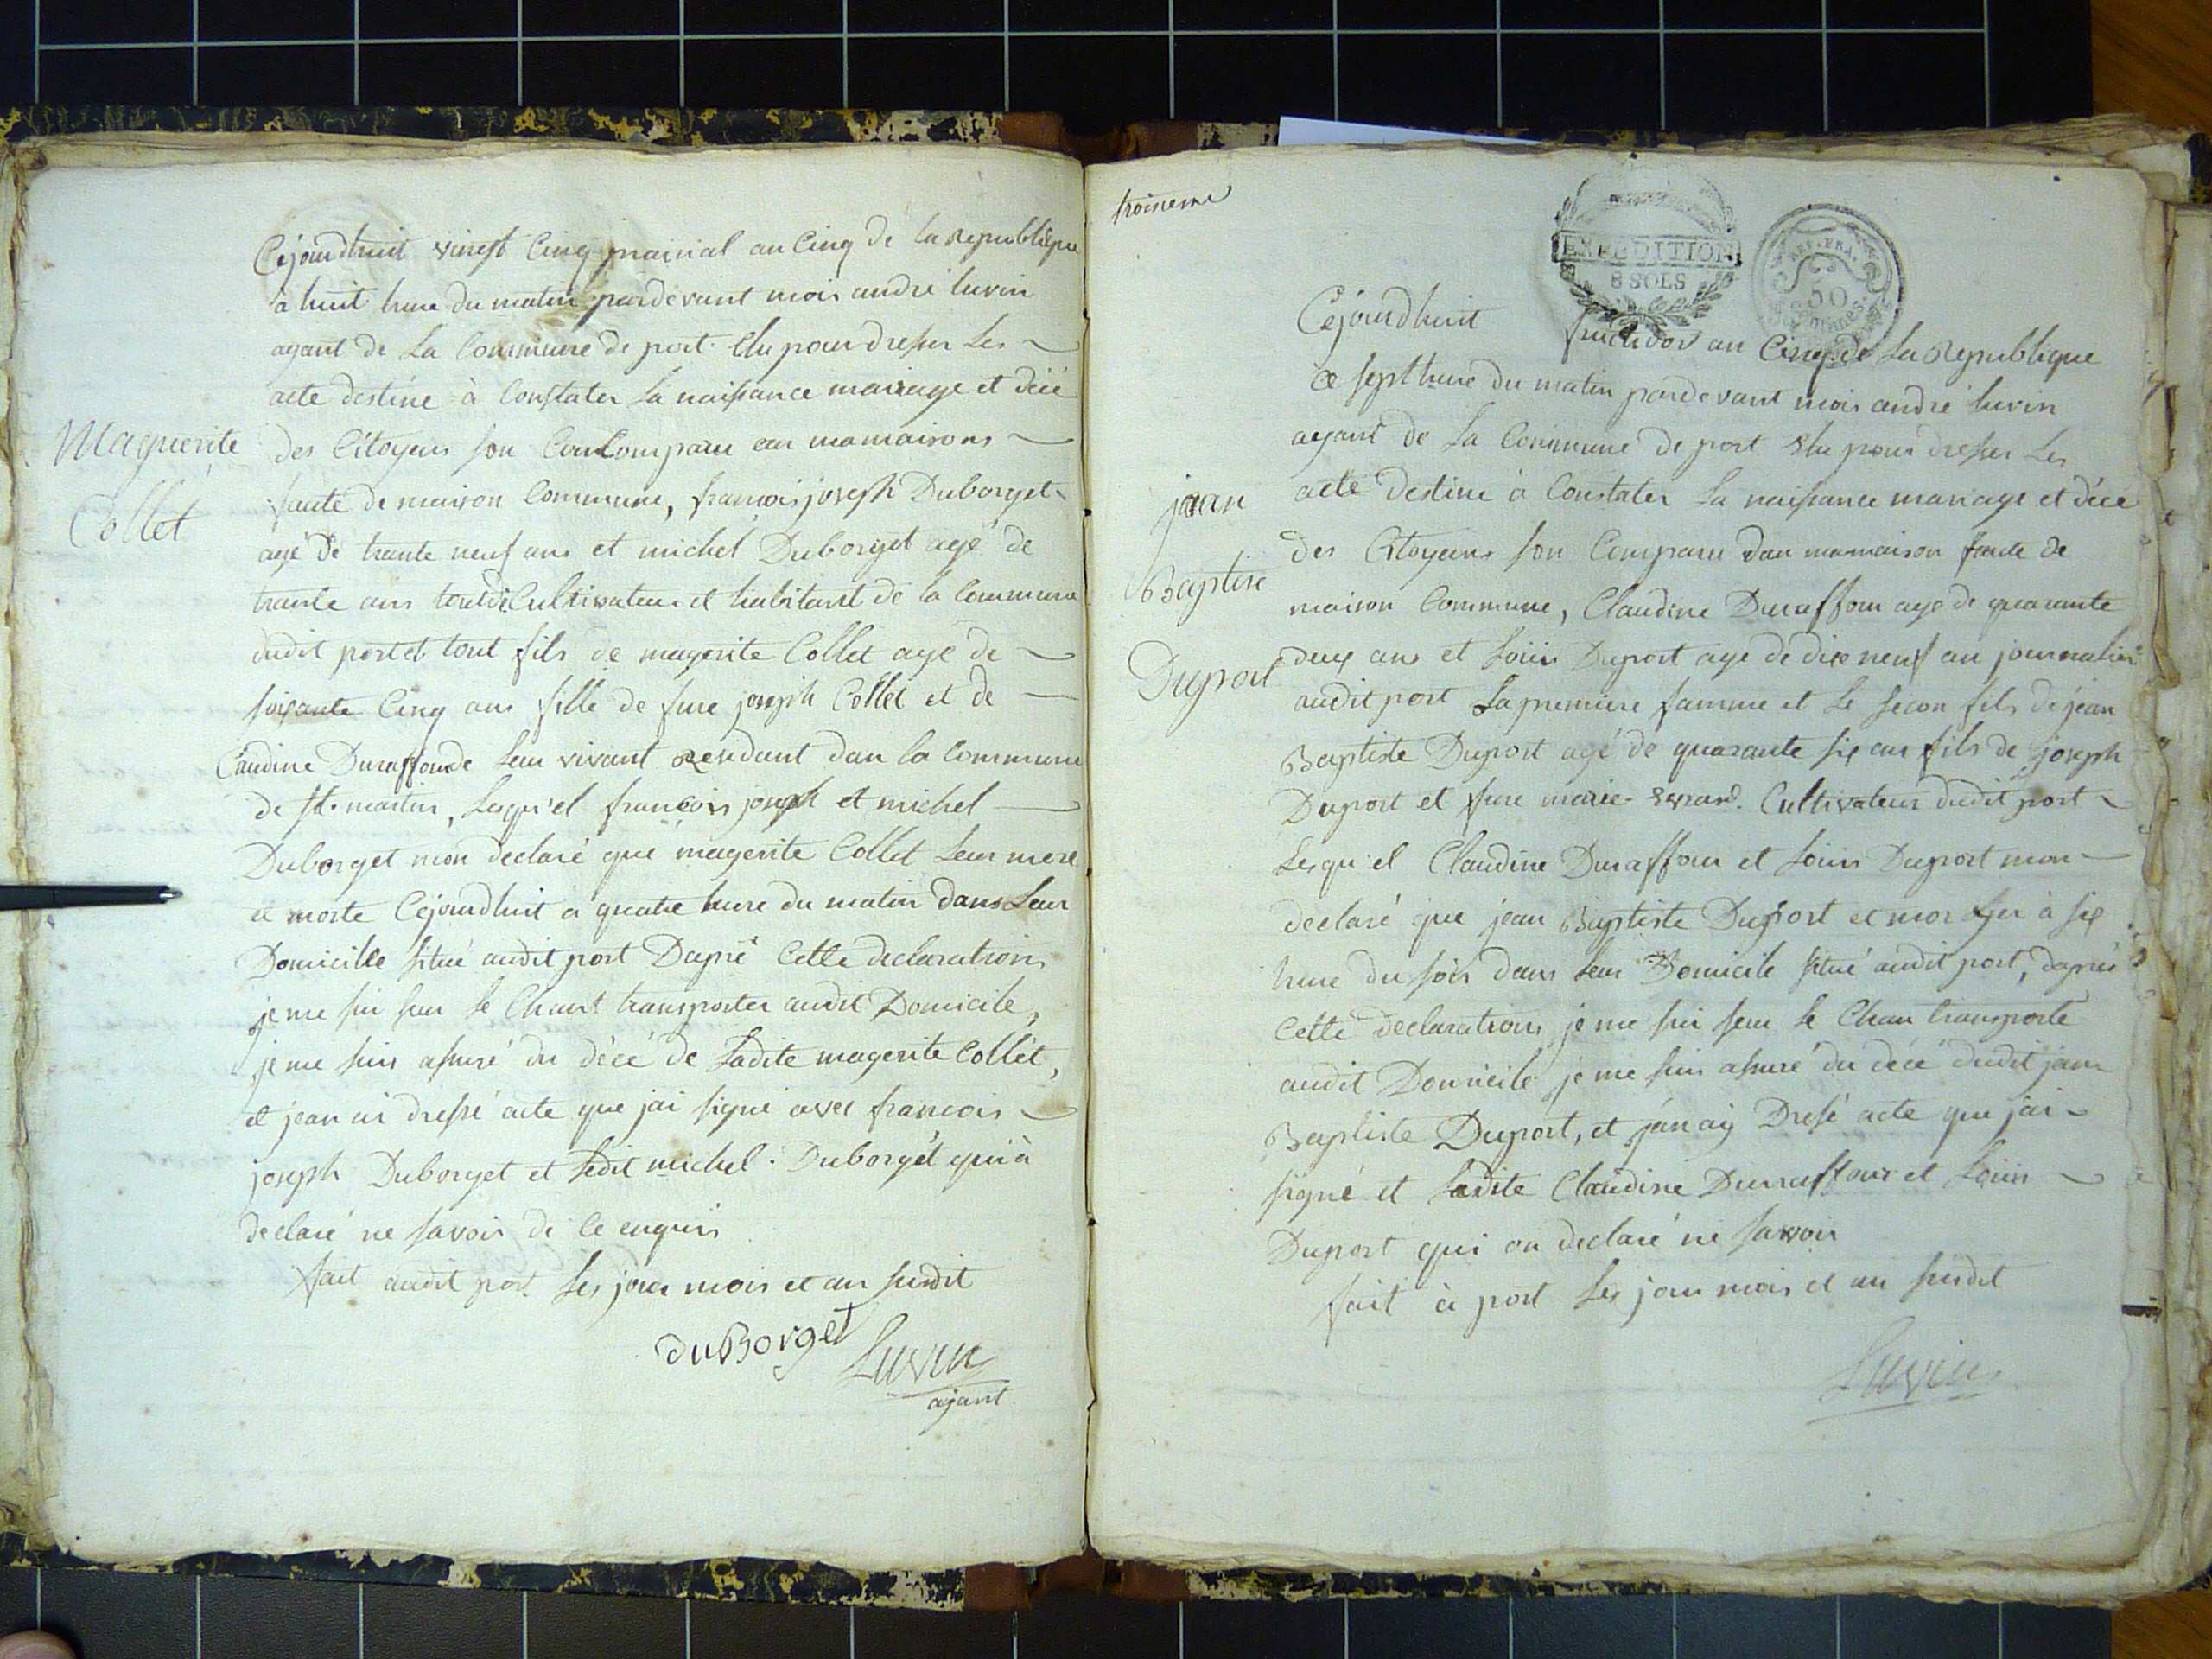 Cejourdhuit vinest Cinq prairial an Cinq de la Republique
à huit hure du matin pardevant moi andré luvin
agant de La Commune de port Elu pour dresser Les
acte destiné à Constater La naissance mariage et décé
des Citoyens son Comparu mamaisons
Maguerite
faute de maison Commune, francois joseph Duborget
Collet
agé de trante neuf ans et michel Duborget agé de
trante ans Cultivateur et habitant de la Commune
dudit port et tout fils de magerite Collet agé de
soixante Cinq ans fille de fure joseph Collet et de
Claudine Duraffour de leur vivant Rendant dan la Commune
de St. martin, Lesqu'el francois joseph et michel
Duborget mon declaré que magerite Collet Leur mere
et morte Cejourdhuit a quatre hure du matin dans Leur
Domicille situé audit port Dapré Cette declarations
je me sui sur le Chant transporter audit Domicile,
je me suis assuré du décé de Ladite magerite Collet,
et jean ai dressé acte que jai signé avec francois
joseph Duborget et Ledit michel Duborget qui à
declaré ne savoir de Ce enquis
fait audit port Les jour mois et an susdit
duBorget
Luvin
agant
troisieme
EXPEDITION
8 SOLS
REP. FRA.
50
Centimes
Cejourdhuit fructidor an Cinq de La Republique
a sept hure du matin pardevant moi andré luvin
agant de La Commune de port Elu pour dresser Les
jean
acte Destiné à Constater La naissance mariage et décé
des Citoyens son Comparu dan mamaison faute de
Baptise
maison Commune, Claudine Duraffour agé de quarante
Duport
deux ans et Louis Duport agé de dixe neuf an journalier
audit port La premiere famme et Le secon fils de jean
Baptiste Duport agé de quarante six an fils de joseph
Duport et fure marie Cultivateur dudit port
Lesqu'el Claudine Duraffour et Louis Duport mon
declaré que jean Baptiste Duport et mor hjer à six
hure du soir dans leur Domicile situé audit port, dapres
Cette declarations je me sui sur le Chan transporté
audit Domicile je me suis assuré du décé dudit jean
Baptiste Duport, et jan aÿ Dresé acte que jai
signé et Ladite Claudine Durraffour et Louis
Duport qui on declaré ne savoir
fait à port Les jour mois et an susdit
Luvin